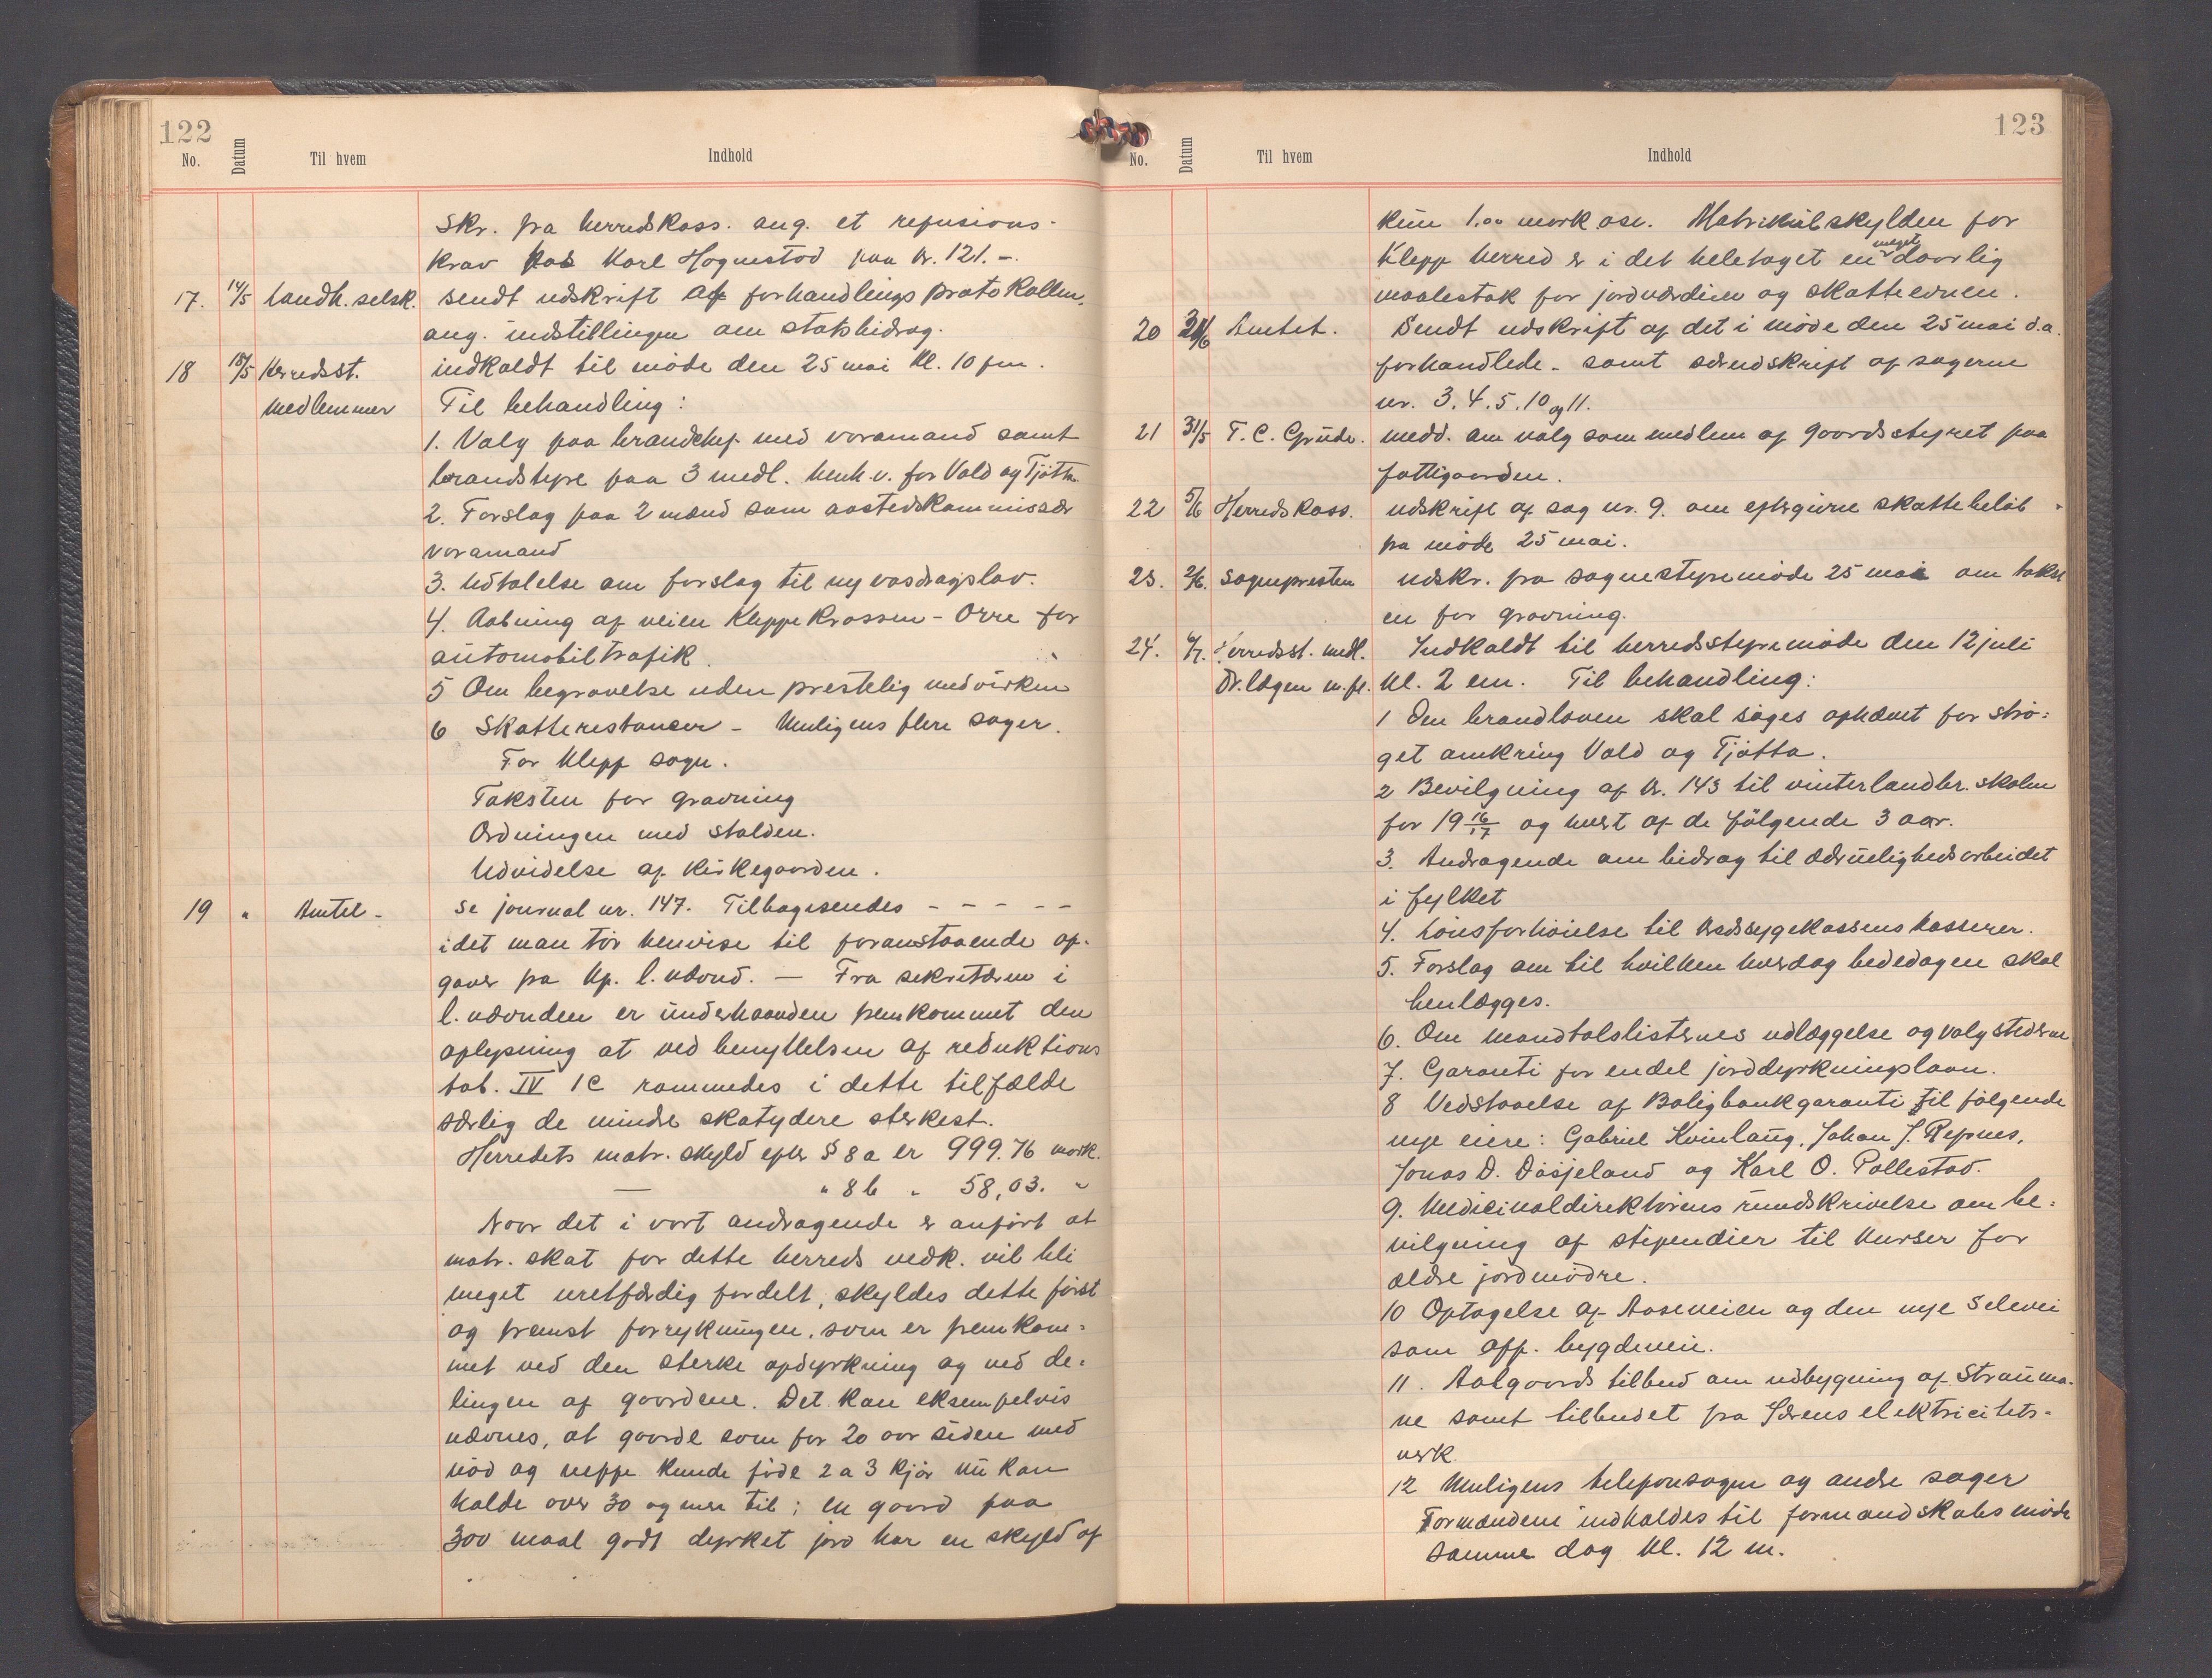 122
No. Datum Til hvem Indhold
Skr. fra herredskass. ang. et refusions-
krav hos Karl Hognestad paa kr. 121.-.
17. 14/5 Landh. selsk. sendt udskrift af forhandlings protokollen,
ang. indstillingen om statsbidrag.
18 18/5 Herredsst. indkaldt til møde den 25 mai kl. 10 fm.
medlemmer Til behandling:
1. Valg paa brandchef med varamand samt
brandstyre paa 3 medl. henh.v. for Vold og Tjøtta
2. Forslag paa 2 mænd som aastedskommissær
varamand
3. Udtalelse om forslag til ny vasdragslov.
4. Aabning af veien Kleppekrossen - Orre for
automobiltrafik.
5 Om begravelse uden prestelig medvirken
6 Skatterestancer - Muligens flere sager.
For Klepp sogn.
Taksten for gravning
Ordningen med stalden.
Udvidelse af kirkegaarden.
19 " Amtet - Se journal nr. 147. Tilbagesendes - - - - -
idet man tør henvise til foranstaaende op-
gaver fra Kp. l.nævnd. - Fra sekretæren i
l. nævnden er underhaanden fremkommet den
oplysning at ved benyttelsen af reduktions
tab. IV 1C rammedes i dette tilfælde
særlig de mindre skatydere sterkest.
Herredets matr. skyld efter § 8a er 999.76 mark.
— " 8b " 58,03. "
Naar det i vort andragende er anført at
matr. skat for dette herreds vedk. vil bli
meget uretfærdig fordelt, skyldes dette først
og fremst forrykningen, som er fremkom-
met ved den sterke opdyrkning og ved de-
lingen af gaardene. Det kan eksempelvis
nævnes, at gaarde som for 20 aar siden med
nød og neppe kunde føde 2 a 3 kjør nu kan
holde over 30 og mere til; en gaard paa
300 maal godt dyrket jord har en skyld af
123
No. Datum Til hvem Indhold
kun 1.00 mark osv. Matrikulskylden for
Klepp herred er i det heletaget en meget daarlig
maalestok for jordværdien og skatteevnen.
20 21/6 Amtet. Sendt udskrift af det i møde den 25 mai d.a.
forhandlede - samt særudskrift af sagerne
nr. 3.4.5.10 og 11.
21 31/5 T. C. Grude. medd. om valg som medlem af gaardsstyret paa
fattiggaarden.
22 5/6 Herredskass. udskrift af sag nr. 9. om eftergivne skattebeløb
fra møde 25 mai.
23. 2/6. Sognepresten udskr. fra sognestyremøde 25 mai om takst
en for gravning.
24. 6/7. Herredsst. medl. Indkaldt til herredsstyremøde den 12 juli
Dr. lægen m.fl. kl. 2 em. Til behandling:
1 Om brandloven skal søges ophævet for strø-
get omkring Vold og Tjøtta.
2 Bevilgning af kr. 143 til vinterlandbr. skolen
for 19 16/17 og hvert af de følgende 3 aar.
3. Andragende om bidrag til ædruelighedsarbeidet
i fylket
4. Lønsforhøielse til kredssygekassens kasserer.
5. Forslag om til hvilken hverdag bededagen skal
henlægges.
6. Om mandtalslisternes udlæggelse og valgstederne
7. Garanti for endel jorddyrkningslaan.
8 Vedstaaelse af Boligbankgaranti til følgende
nye eiere: Gabriel Kvinlaug, Johan J. Refsnes,
Jonas D. Døsjeland og Karl O. Pollestad.
9. Medicinaldirektørens rundskrivelse om be-
vilgning af stipendier til kurser for
ældre jordmødre.
10 Optagelse af Aaseveien og den nye Selevei
som off. bygdevei.
11. Aalgaards tilbud om udbygning af Strauma-
ne samt tilbudet fra Jærens elektricitets-
verk.
12 Muligens telefonsagen og andre sager
Formændene indkaldes til formandskabsmøde
samme dag kl. 12 m.